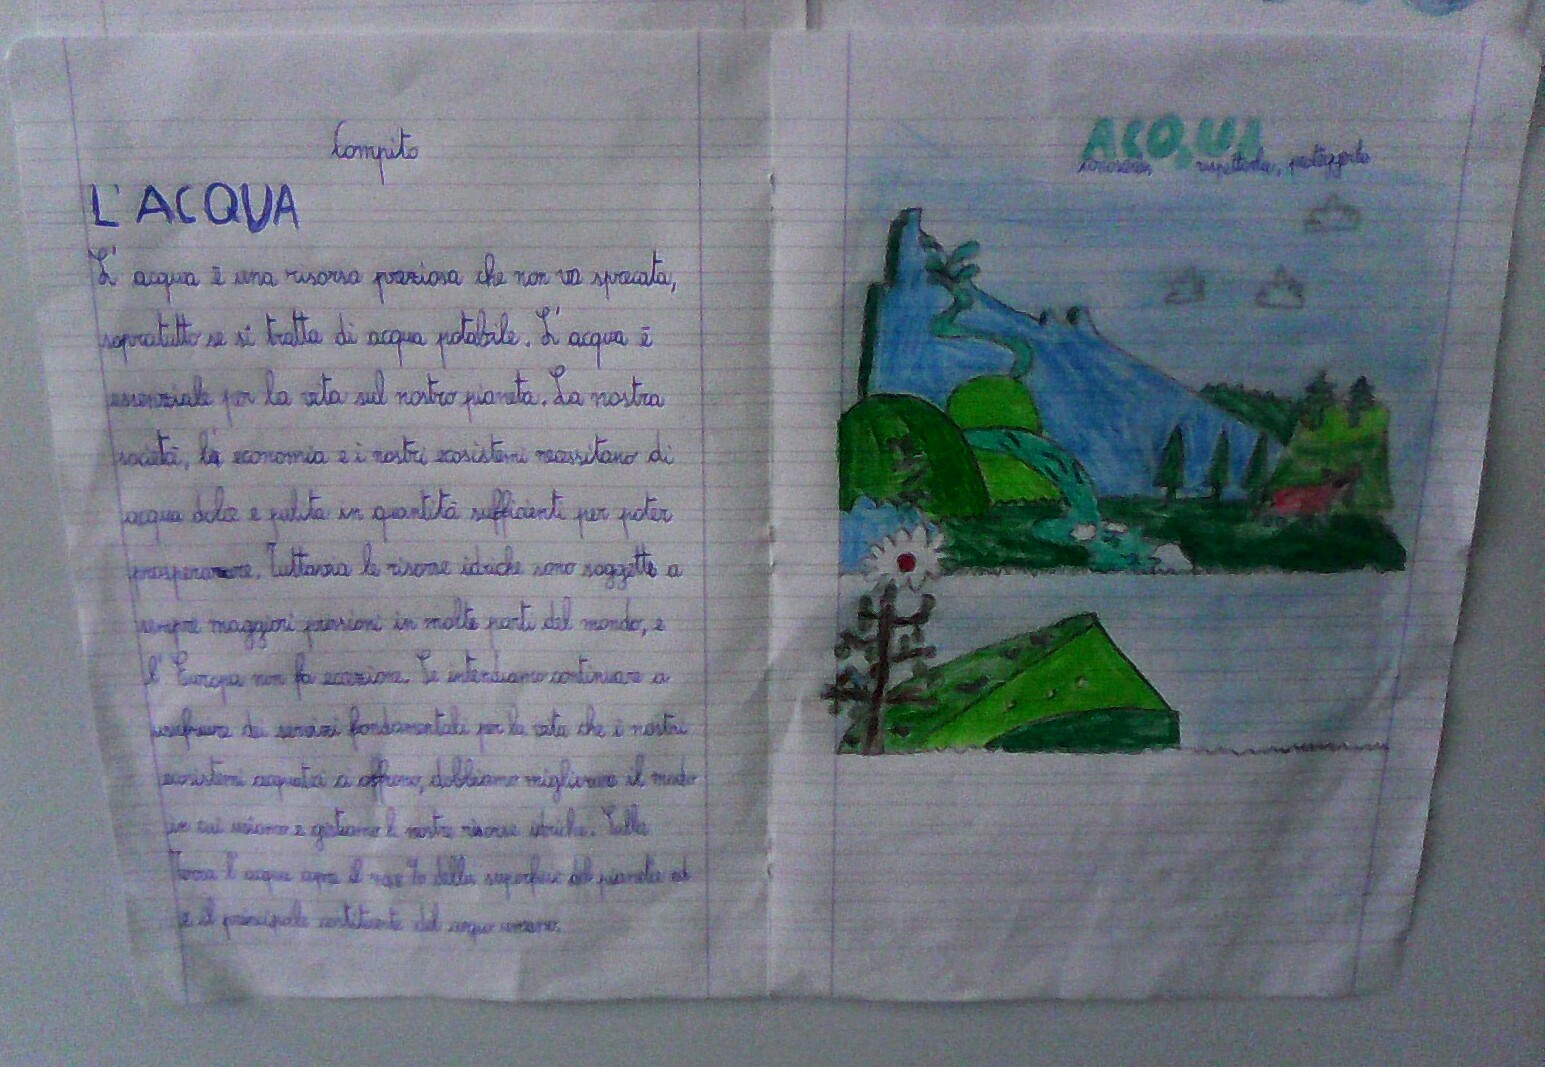 Compito
L'ACQUA
L'acqua è una risorsa preziosa che non va sprecata,
sopratutto se si tratta di acqua potabile. L'acqua è
essenziale per la vita sul nostro pianeta. La nostra
società, la economia e i nostri ecosistemi necessitano di
acqua dolce e pulita in quantità sufficienti per poter
prosperare. Tuttavia le risorse idriche sono soggette a
sempre maggiori pressioni in molte parti del mondo, e
l'Europa non fa eccezione. Se intendiamo continuare a
usufruire dei servizi fondamentali per la vita che i nostri
ecosistemi acquatici ci offrono, dobbiamo migliorare il modo
in cui usiamo e gestiamo le nostre risorse idriche. Sulla
Terra l'acqua copre il % della superficie del pianeta ed
è il principale costituente del corpo umano.
ACQUA
rispettarla, proteggerla